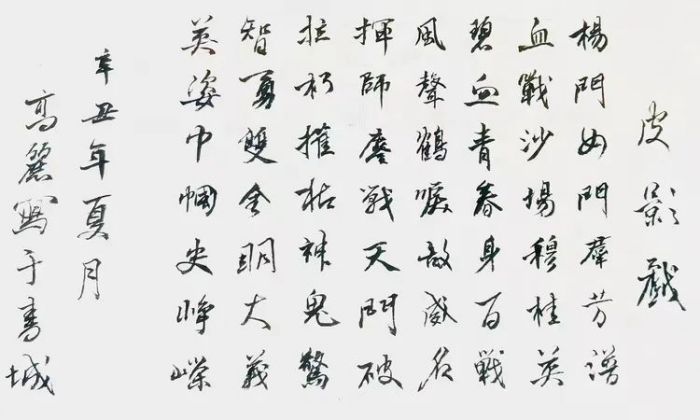 皮影戲
楊門女門羣芳譜
血戰沙場穆桂英
碧血青春身百戰
風聲鶴唳敌威名
揮師鏖戰天門破
拉朽摧枯神鬼驚
智勇雙全明大義
英姿巾帼史峥嵘
辛丑年夏月
高麗寫于書城